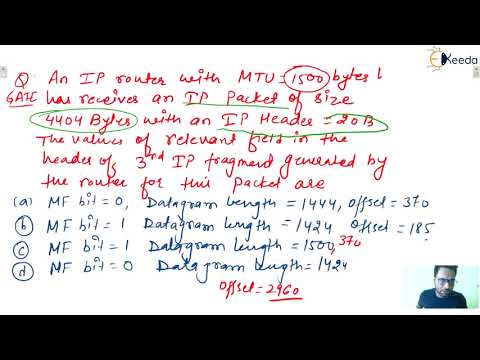 Keeda
Q. An IP router with MTU = 1500 bytes
GATE has receives an IP Packet of size
4404 Bytes with an IP Header = 20B
The values of relevant field in the
header of 3rd IP fragment generated by
the router for this Packet are
(a) MF bit = 0, Datagram Length = 1444, offset = 370
(b) MF bit = 1 Datagram Length = 1424 offset = 185
(c) MF bit = 1 Datagram Length = 1500, 370
(d) MF bit = 0 Datagram Length = 1424
offset = 2960